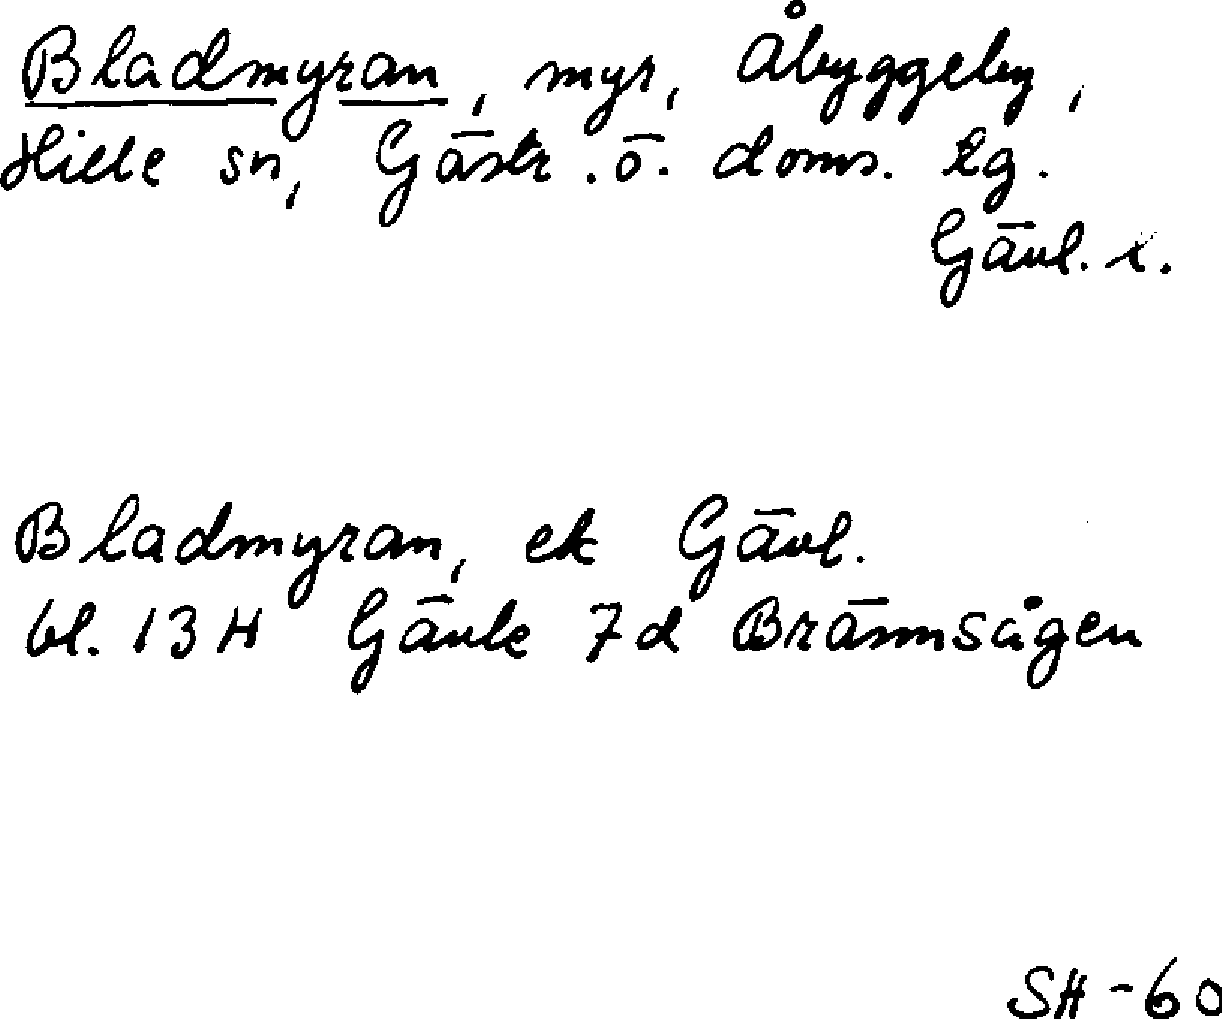 Bladmyran, myr, Åbyggeby,
Hille sn, Gästr. ö. doms. tg.
Gävl. l.
Bladmyran, ek Gävl.
bl. 13 H Gävle 7 d Brännsågen
SH-60